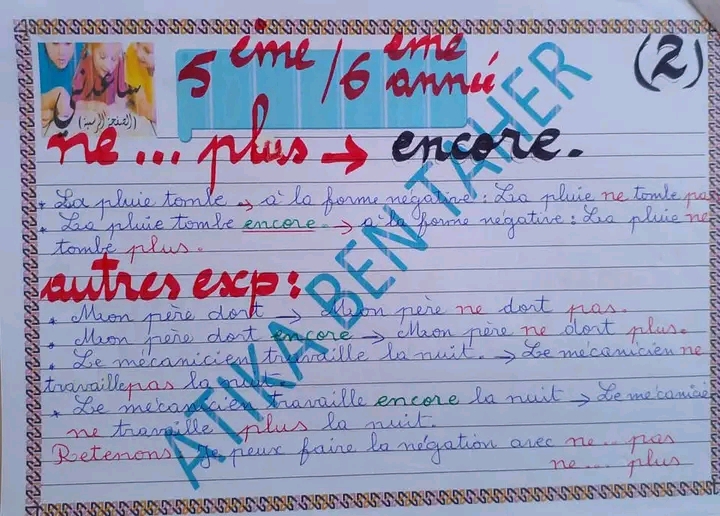 5 ème / 6 ème année
(2)
ساعدني
(الصفحة الرسمية)
ne ... plus → encore.
* La pluie tombe → à la forme négative : La pluie ne tombe pas
* La pluie tombe encore. → à la forme négative : La pluie ne
tombe plus.
autres exp :
* Mon père dort → Mon père ne dort pas.
* Mon père dort encore → Mon père ne dort plus.
* Le mécanicien travaille la nuit. → Le mécanicien ne
travaille pas la nuit.
* Le mécanicien travaille encore la nuit → Le mécanicie
ne travaille plus la nuit.
Retenons : Je peux faire la négation avec ne ... pas
ne ... plus
ATIKA BEN TAHER